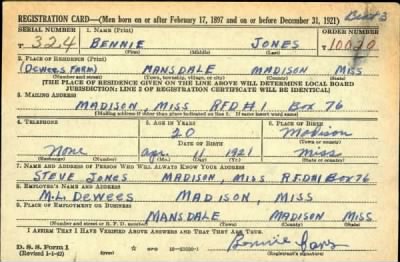 REGISTRATION CARD—(Men born on or after February 17, 1897 and on or before December 31, 1921)
SERIAL NUMBER 1. NAME (Print) ORDER NUMBER
T 324 BENNIE JONES 10020
(First) (Middle) (Last)
2. PLACE OF RESIDENCE (Print)
(DEWEES FARM) MANSDALE MADISON MISS
(Number and street) (Town, township, village, or city) (County) (State)
[THE PLACE OF RESIDENCE GIVEN ON THE LINE ABOVE WILL DETERMINE LOCAL BOARD
JURISDICTION; LINE 2 OF REGISTRATION CERTIFICATE WILL BE IDENTICAL]
3. MAILING ADDRESS
MADISON, MISS RFD#1 BOX 76
[Mailing address if other than place indicated on line 2. If same insert word same]
4. TELEPHONE 5. AGE IN YEARS 6. PLACE OF BIRTH
20 Madison
DATE OF BIRTH (Town or county)
None Apr. 11 1921 Miss
(Exchange) (Number) (Mo.) (Day) (Yr.) (State or country)
7. NAME AND ADDRESS OF PERSON WHO WILL ALWAYS KNOW YOUR ADDRESS
STEVE JONES MADISON, MISS RFD#1 BOX 76
8. EMPLOYER'S NAME AND ADDRESS
M.L. DEWEES MADISON, MISS
9. PLACE OF EMPLOYMENT OR BUSINESS
MANSDALE MADISON MISS
(Number and street or R. F. D. number) (Town) (County) (State)
I AFFIRM THAT I HAVE VERIFIED ABOVE ANSWERS AND THAT THEY ARE TRUE.
D. S. S. Form 1
(Revised 1-1-42) GPO (Registrant's signature)